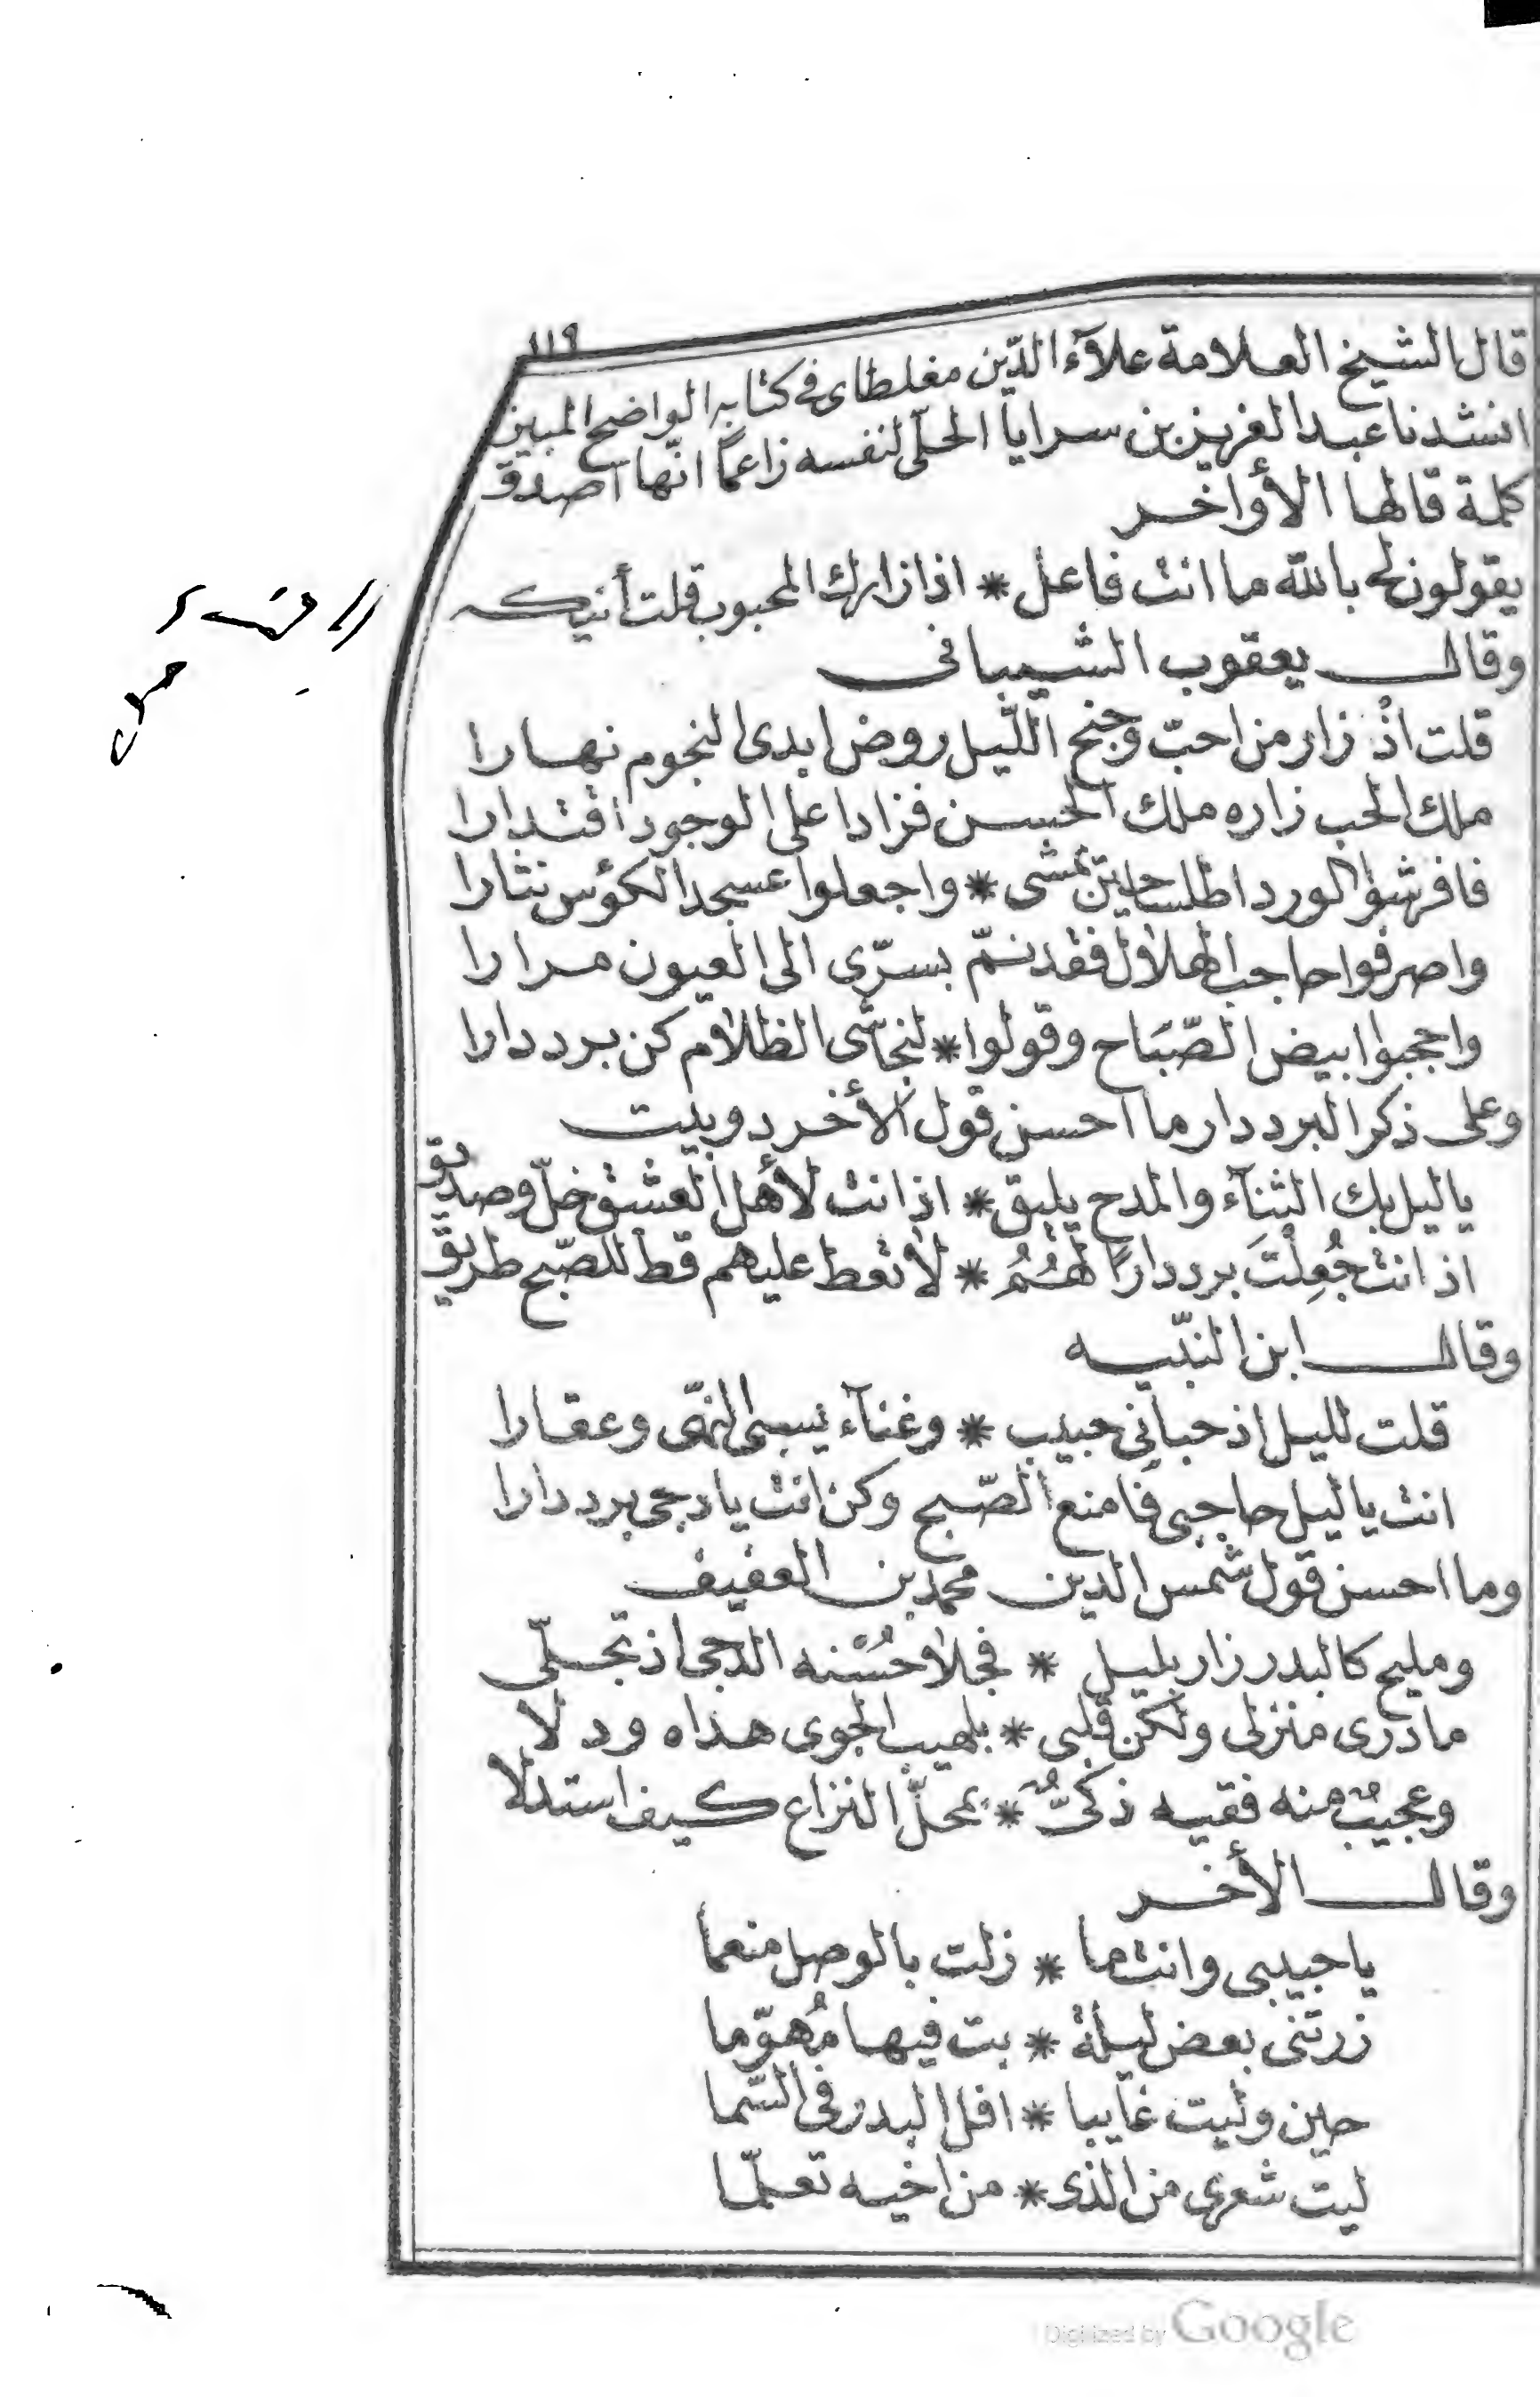 ١١٩
قال الشيخ العلامة علآء الدّين مغلطاى فى كتابه الواضح المبين
انشدنا عبد العزيز بن سرايا الحلّى لنفسه زاعمًا انّها اصدق
كلمة قالها الأواخر
يقولون لى بالله ما انت فاعل * اذا زارك المحبوب قلت أنيكه
وقال يعقوب الشيبانى
قلت اذْ زار من احبّ وجنح اللّيل روض ابدى النجوم نهارا
ملك الحب زاره ملك الحسن فزادا على الوجود اقتدارا
فافرشوا الورد اطلسا حين تمشى * واجعلوا عسجد الكؤس نثارا
واصرفوا حاجب الهلال فقد نمّ بسرّى الى العيون مرارا
واحجبوا ابيض الصّبَاح وقولوا * لنجاشى الظلام كن برددارا
وعلى ذكر البرددار ما احسن قول الأخر دوبيت
ياليل بك الثنآء والمدح يليق * اذ انت لأهل العشق خلّ وصديق
اذ انت جُعِلْتَ برددارًا لهُمُ * لا تعط عليهم قط للصّبح طريق
وقال ابن النبّيه
قلت لليل اذ حبانى حبيب * وغنآء يسبى النهى وعقارا
انت ياليل حاجبى فامنع الصّبح وكن انت يادجى برددارا
وما احسن قول شمس الدين محمد بن العفيف
ومليح كالبدر زار بليل * فجلا حُسْنه الدجى اذ تجلّى
مادرى منزلى ولكن قلبى * بلهيب الجوى هداه ودلا
وعجيبٌ منه فقيه ذكىٌّ * بمحلّ النزاع كيف استدلا
وقال الأخر
ياحبيبى وانت ما * زلت بالوصل منعما
زرتنى بعض ليلة * بت فيها مُهوّما
حين وليت غايبا * افل البدر فى السّما
ليت شعرى من الذى * من اخيه تعلّما
Digitized by Google